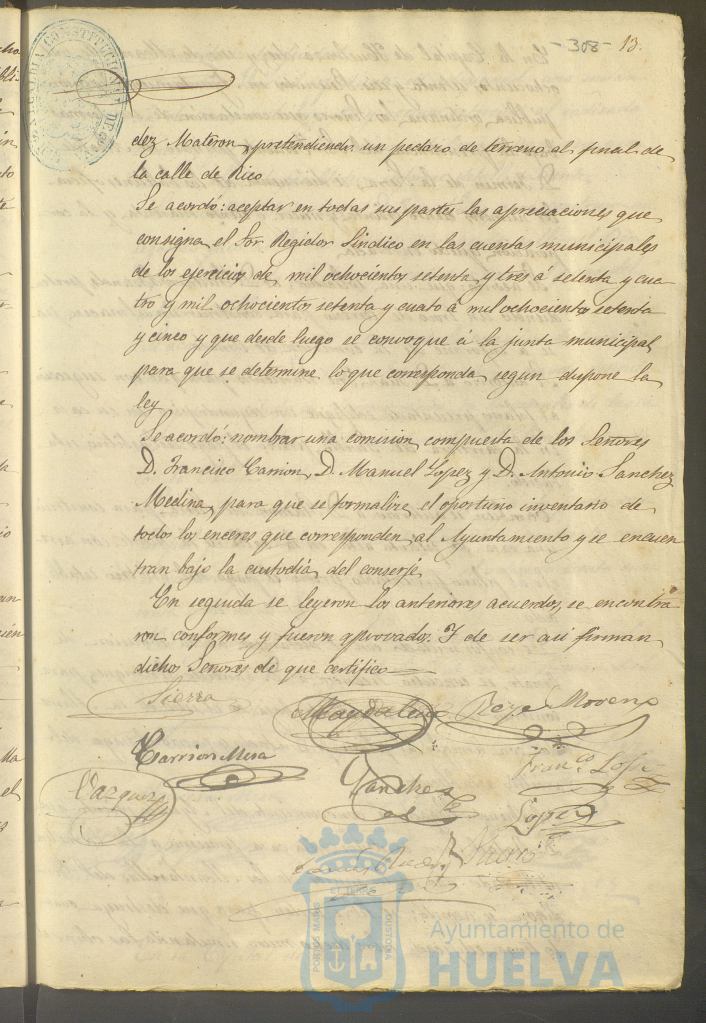 -308- 13.
dez Materon, pretendiendo un pedazo de terreno al final de
la calle de Rico
Se acordó: aceptar en todas sus partes las apreciaciones que
consigna el Sor Regidor Sindico en las cuentas municipales
de los ejercicios de mil ochocientos setenta y tres á setenta y cua-
tro y mil ochocientos setenta y cuato á mil ochocientos setenta
y cinco y que desde luego se convoque á la junta municipal
para que se determine lo que corresponda segun dispone la
ley
Se acordó: nombrar una comision compuesta de los Señores
D. Francisco Carrion, D. Manuel Lopez y D. Antonio Sanchez
Medina, para que se formalice el oportuno inventario de
todos los enceres que corresponden al Ayuntamiento y se encuen
tran bajo la custodia del conserje
En seguida se leyeron los anteriores acuerdos, se encontra-
ron conformes y fueron aprovados. Y de ser asi firman
dichos Señores de que certifico
Sierra
Moreno
Carrion Mesa
Franco. Lopez
Vazquez
Sanchez
Lopez
PORTUS MARIS
ET TERRAE
CUSTODIA
Ayuntamiento de
HUELVA